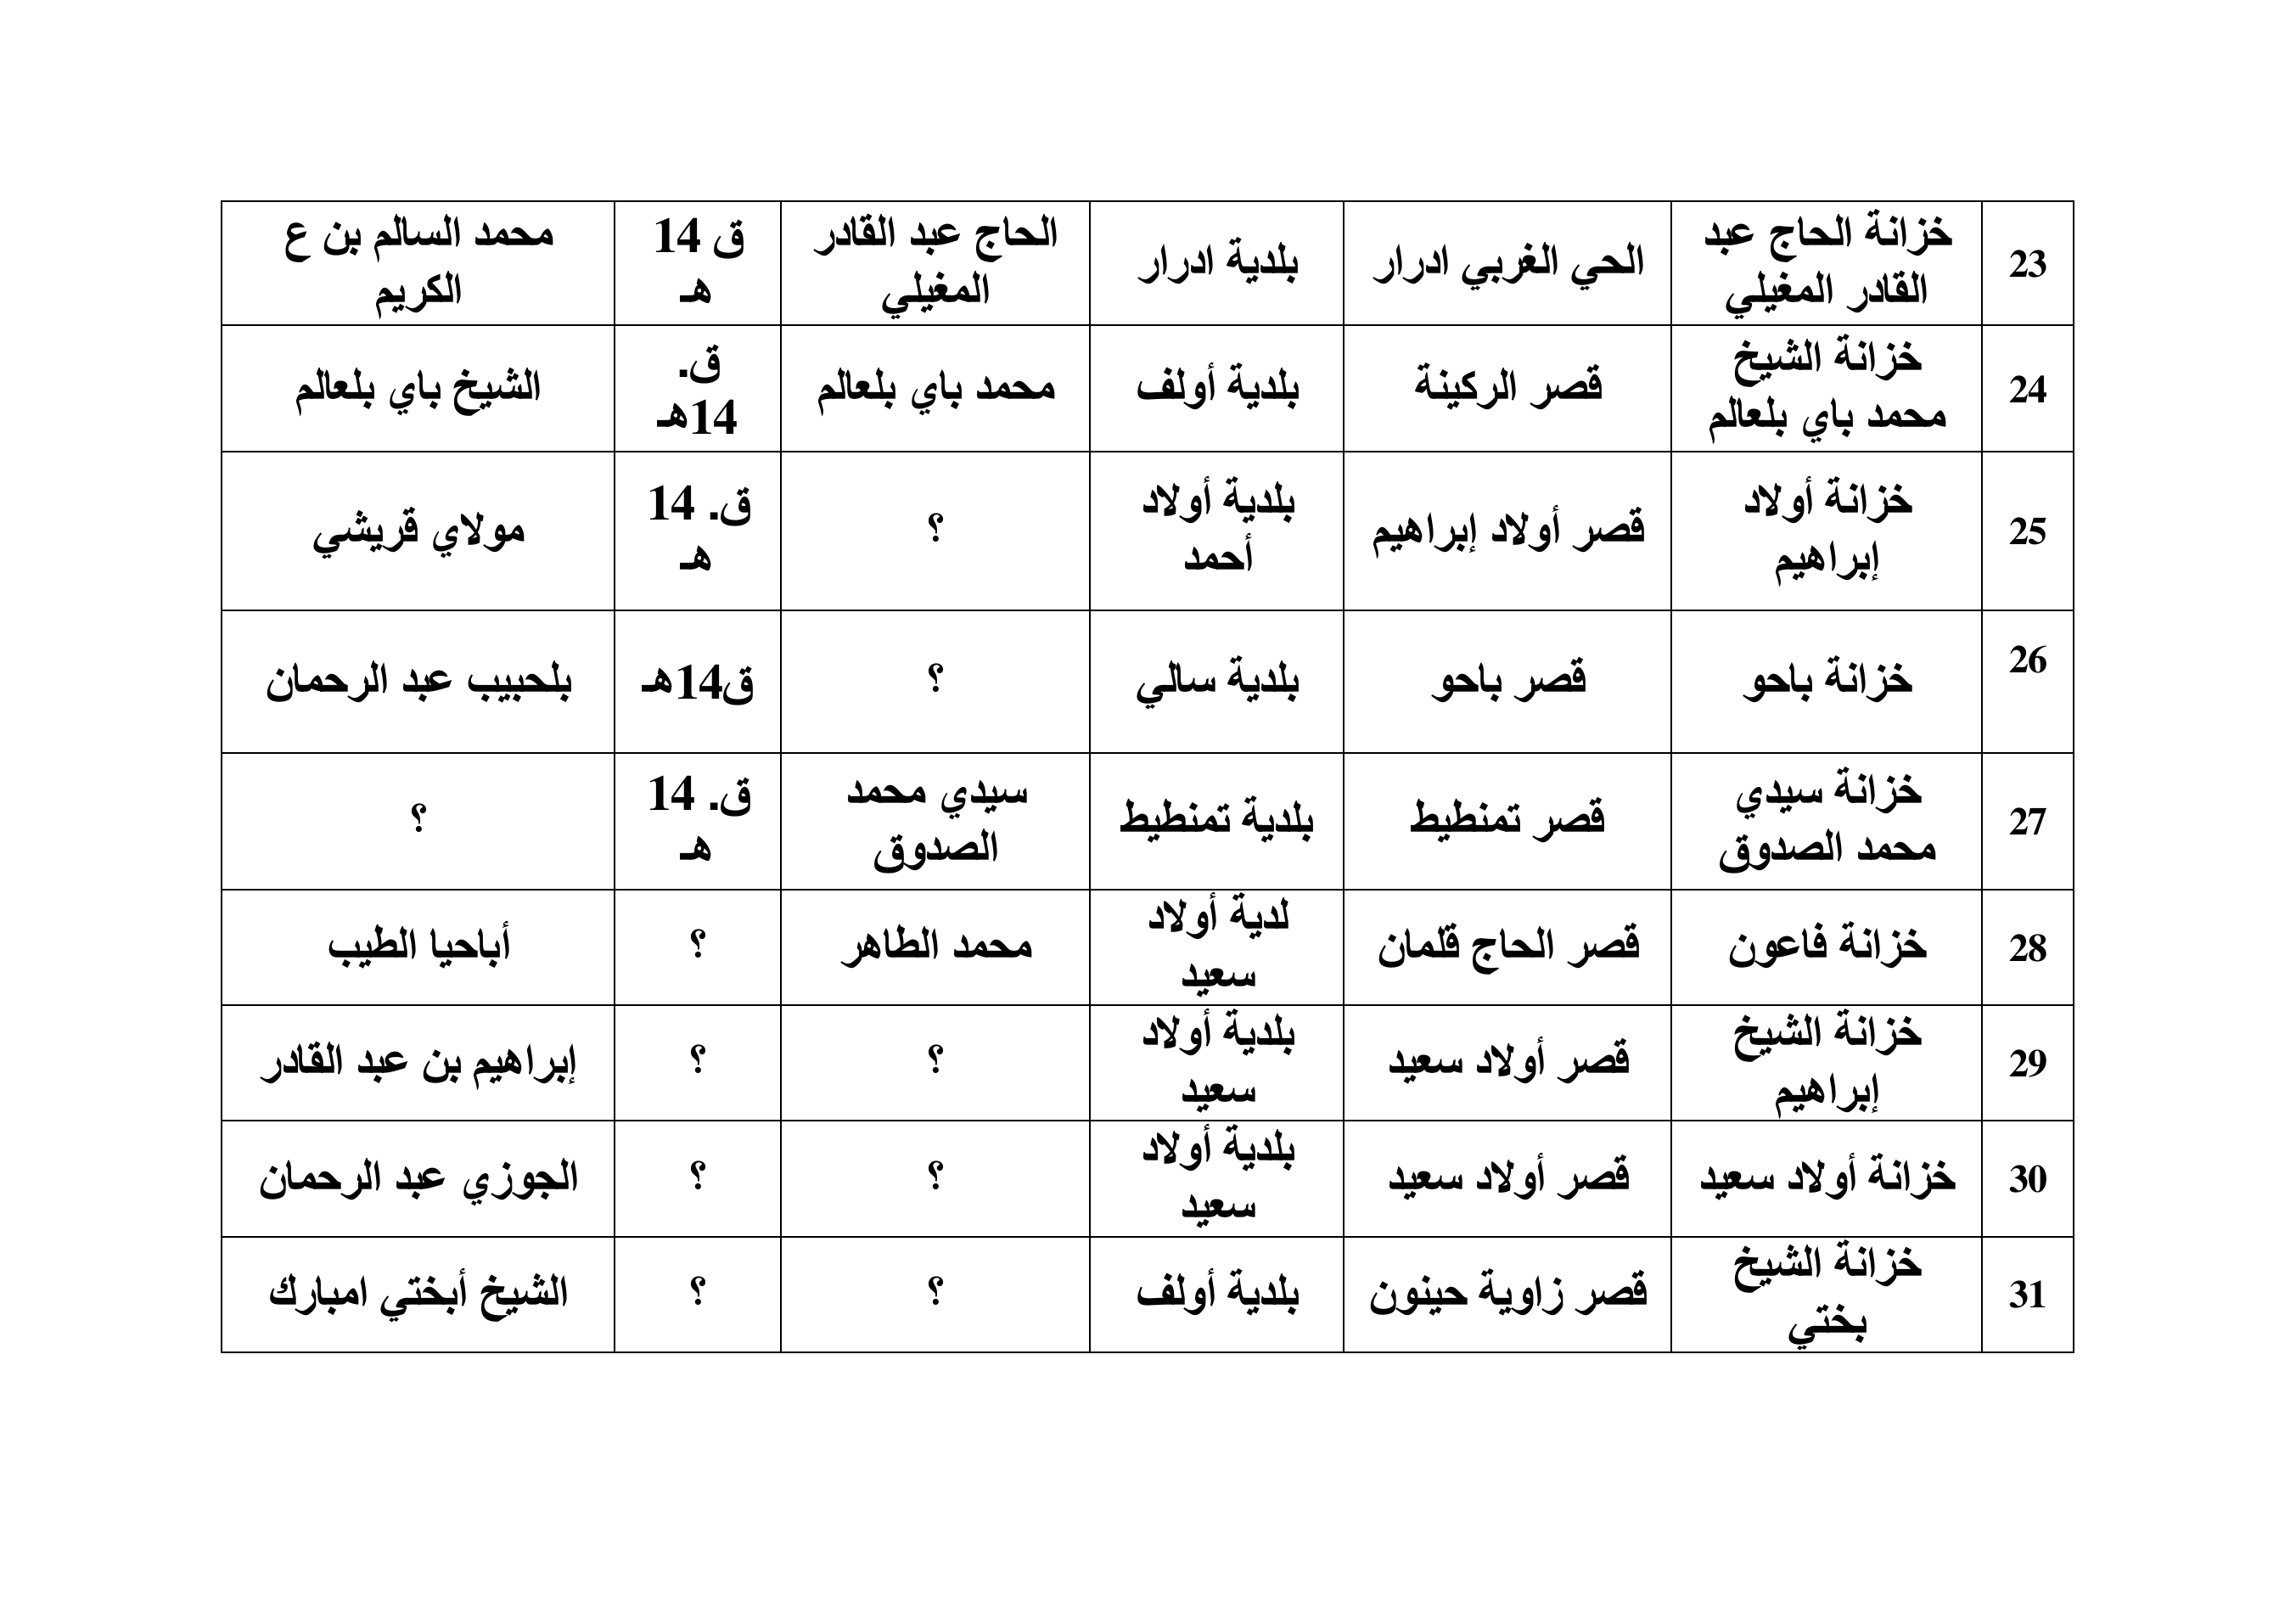 23 خزانة الحاج عبد القادر المغيلي الحي الغربي ادرار بلدية ادرار الحاج عبد القادر المغيلي ق 14 هـ محمد السالم بن ع الكريم
24 خزانة الشيخ محمد باي بلعالم قصر الركينة بلدية أولف محمد باي بلعالم ق. 14هـ الشيخ باي بلعالم
25 خزانة أولاد إبراهيم قصر أولاد إبراهيم بلدية أولاد أحمد ؟ ق. 14 هـ مولاي قريشي
26 خزانة باحو قصر باحو بلدية سالي ؟ ق14هـ بلحبيب عبد الرحمان
27 خزانة سيدي محمد الصدوق قصر تمنطيط بلدية تمنطيط سيدي محمد الصدوق ق. 14 هـ ؟
28 خزانة فاعون قصر الحاج قلمان لدية أولاد سعيد محمد الطاهر ؟ أباحيا الطيب
29 خزانة الشيخ إبراهيم قصر أولاد سعيد بلدية أولاد سعيد ؟ ؟ إبراهيم بن عبد القادر
30 خزانة أولاد سعيد قصر أولاد سعيد بلدية أولاد سعيد ؟ ؟ الجوزي عبد الرحمان
31 خزانة الشيخ بختي قصر زاوية حينون بلدية أولف ؟ ؟ الشيخ أبختي امبارك